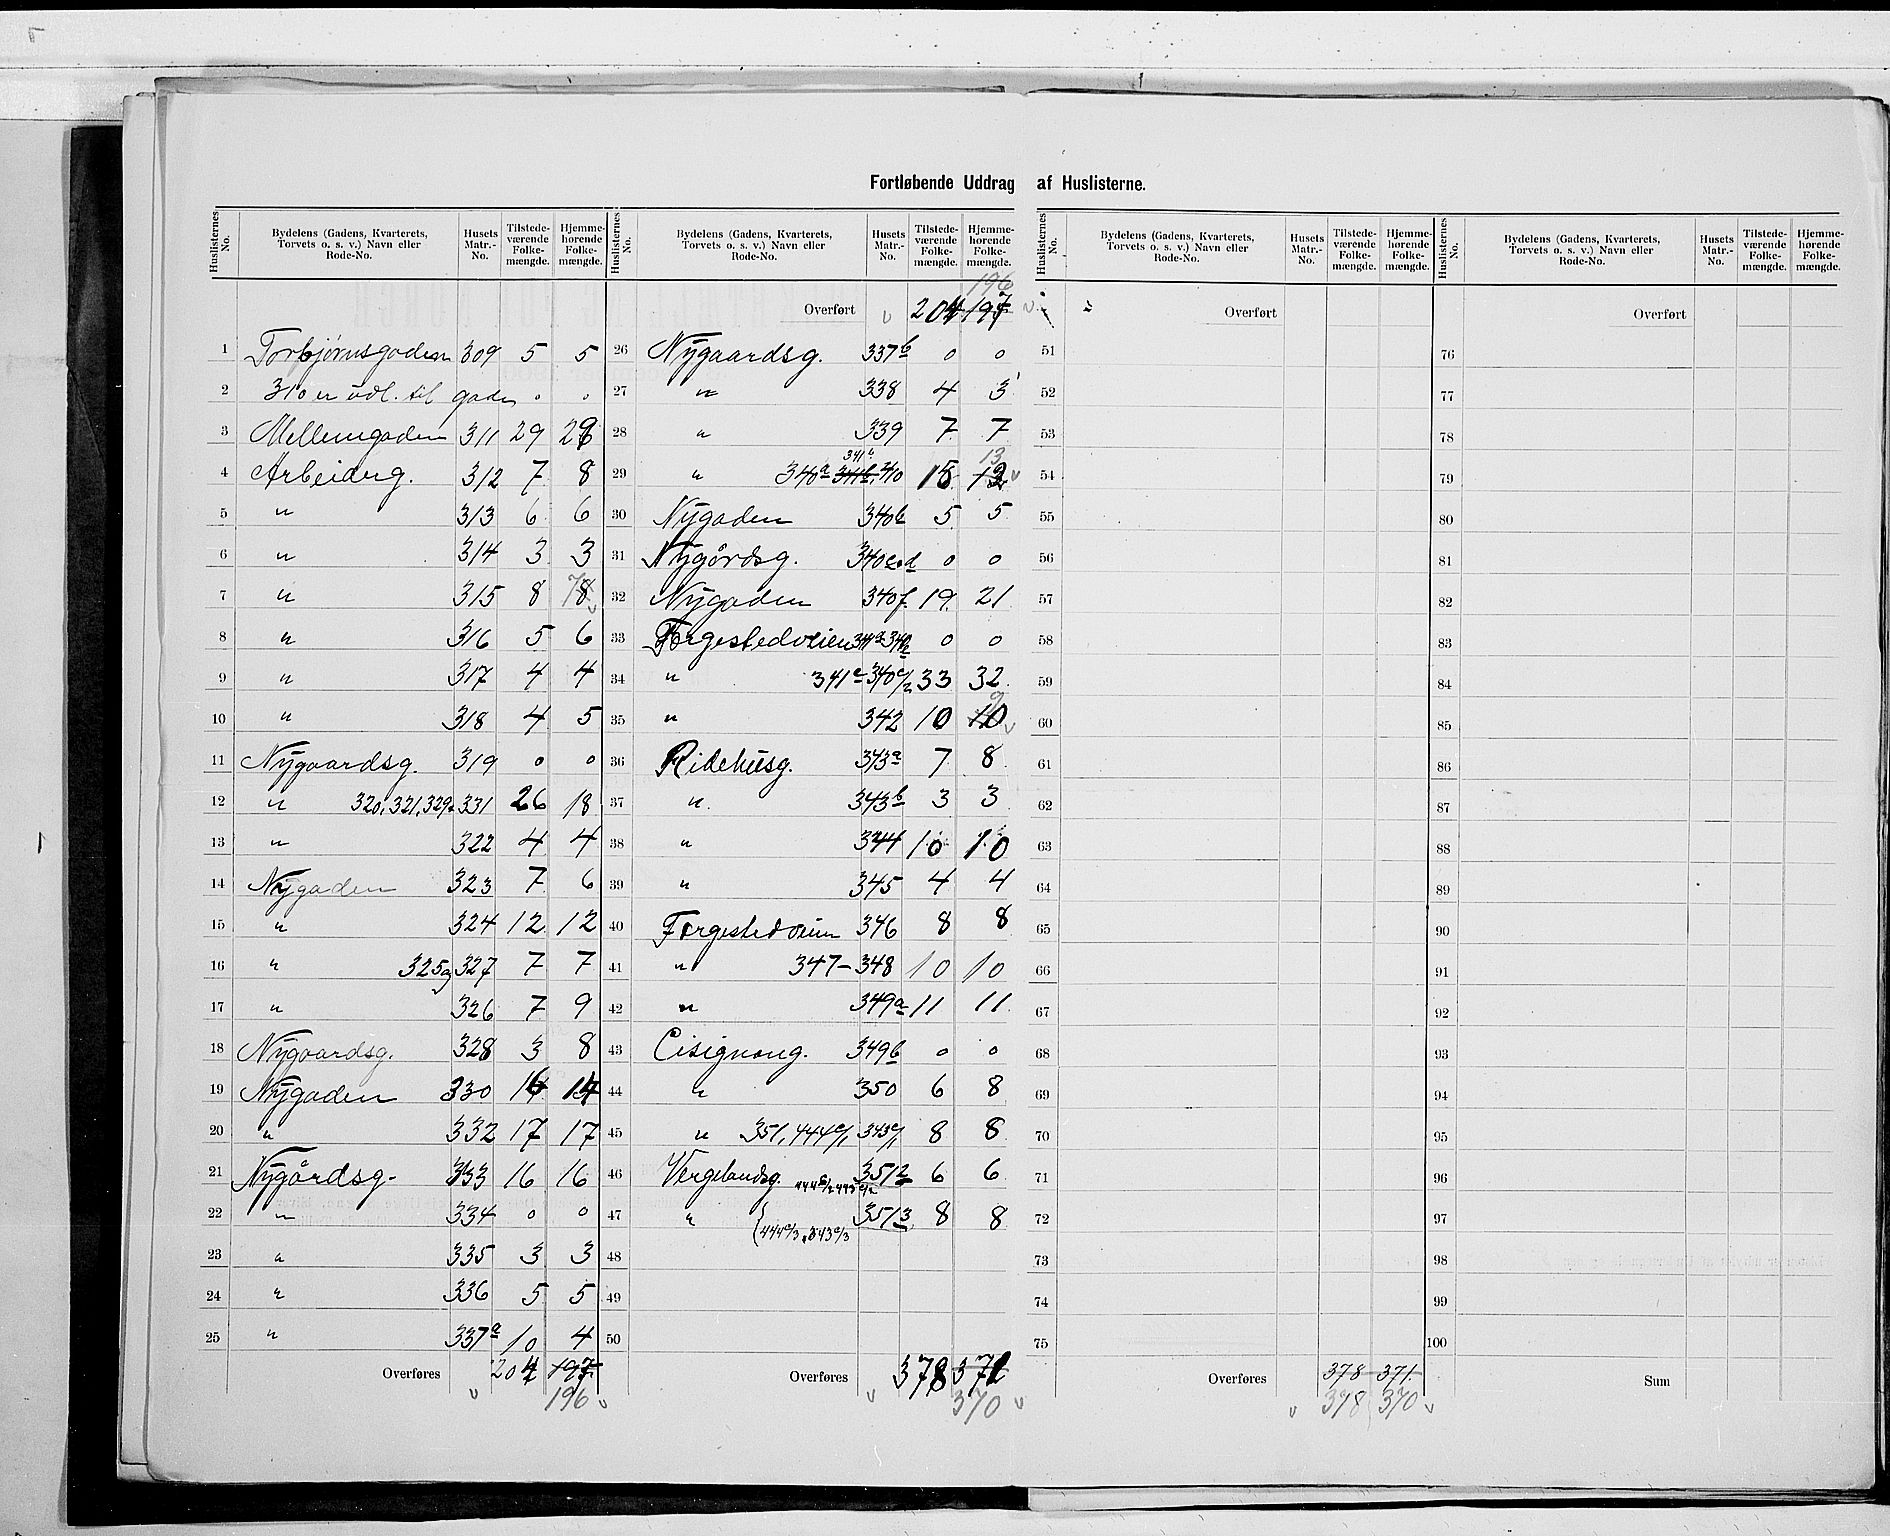 Fortløbende Uddrag af Huslisterne.
Huslisternes No. | Bydelens (Gadens, Kvarterets, Torvets o. s. v.) Navn eller Rode-No. | Husets Matr.-No. | Tilstede-værende Folke-mængde. | Hjemme-hørende Folke-mængde.
1 Torbjørnsgaden 309 5 5
2 310 er udl. til gade 0 0
3 Mellemgaden 311 29 28
4 Arbeiderg. 312 7 8
5 " 313 6 6
6 " 314 3 3
7 " 315 8 7 8
8 " 316 5 6
9 " 317 4 4
10 " 318 4 5
11 Nygaardsg. 319 0 0
12 " 320, 321, 329, 331 26 18
13 " 322 4 4
14 Nygaden 323 7 6
15 " 324 12 12
16 " 325 og 327 7 7
17 " 326 7 9
18 Nygaardsg. 328 3 8
19 Nygaden 330 14 14
20 " 332 17 17
21 Nygårdsg. 333 16 16
22 " 334 0 0
23 " 335 3 3
24 " 336 5 5
25 " 337a 10 4
Overføres 204 197
196
Huslisternes No. | Bydelens (Gadens, Kvarterets, Torvets o. s. v.) Navn eller Rode-No. | Husets Matr.-No. | Tilstede-værende Folke-mængde. | Hjemme-hørende Folke-mængde.
196
Overført 204 197
26 Nygaardsg. 337b 0 0
27 " 338 4 3
28 " 339 7 7
29 " 340a 15 13
30 Nygaden 340b 5 5
31 Nygårdsg. 340c.d 0 0
32 Nygaden 340f 19 21
33 Forgestedveien 0 0
34 " 341c 340c/2 33 32
35 " 342 10 9 10
36 Ridehusg. 343a 7 8
37 " 343b 3 3
38 " 344 10 10
39 " 345 4 4
40 Forgestedveien 346 8 8
41 " 347-348 10 10
42 " 349a 11 11
43 Cisignong. 349b 0 0
44 " 350 6 8
45 " 351, 444c/1, 343c/1 8 8
46 Vergelandsg. 444c/2 443c/2 351/2 6 6
47 " 444c/3, 343c/3 351/3 8 8
48
49
50
Overføres 378 371
370
Huslisternes No. | Bydelens (Gadens, Kvarterets, Torvets o. s. v.) Navn eller Rode-No. | Husets Matr.-No. | Tilstede-værende Folke-mængde. | Hjemme-hørende Folke-mængde.
Overført
51
52
53
54
55
56
57
58
59
60
61
62
63
64
65
66
67
68
69
70
71
72
73
74
75
Overføres 378 371
378 370
Huslisternes No. | Bydelens (Gadens, Kvarterets, Torvets o. s. v.) Navn eller Rode-No. | Husets Matr.-No. | Tilstede-værende Folke-mængde. | Hjemme-hørende Folke-mængde.
Overført
76
77
78
79
80
81
82
83
84
85
86
87
88
89
90
91
92
93
94
95
96
97
98
99
100
Sum